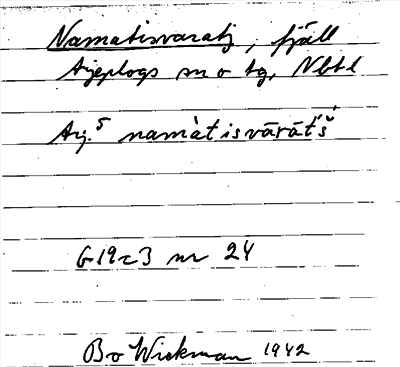 Namatisvaratj, fjäll
Arjeplogs sn o tg, Nbtl
Arj.5 namàtisvārātš́
G19c3 nr 24
Bo Wickman 1942